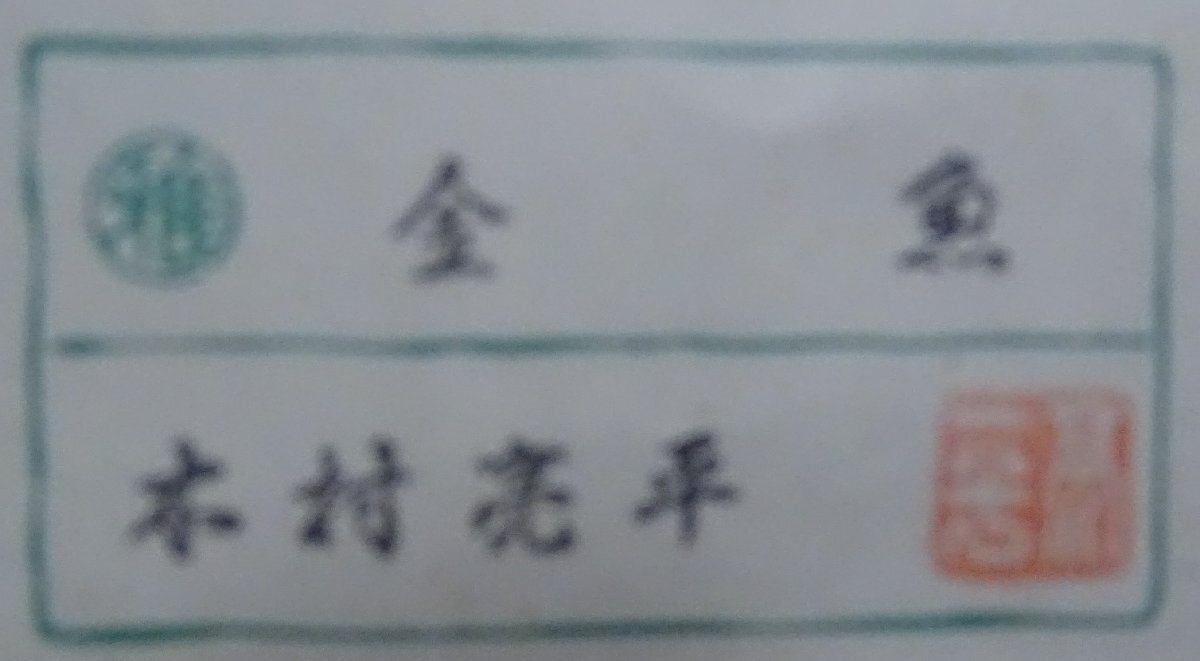 金魚
木村亮平